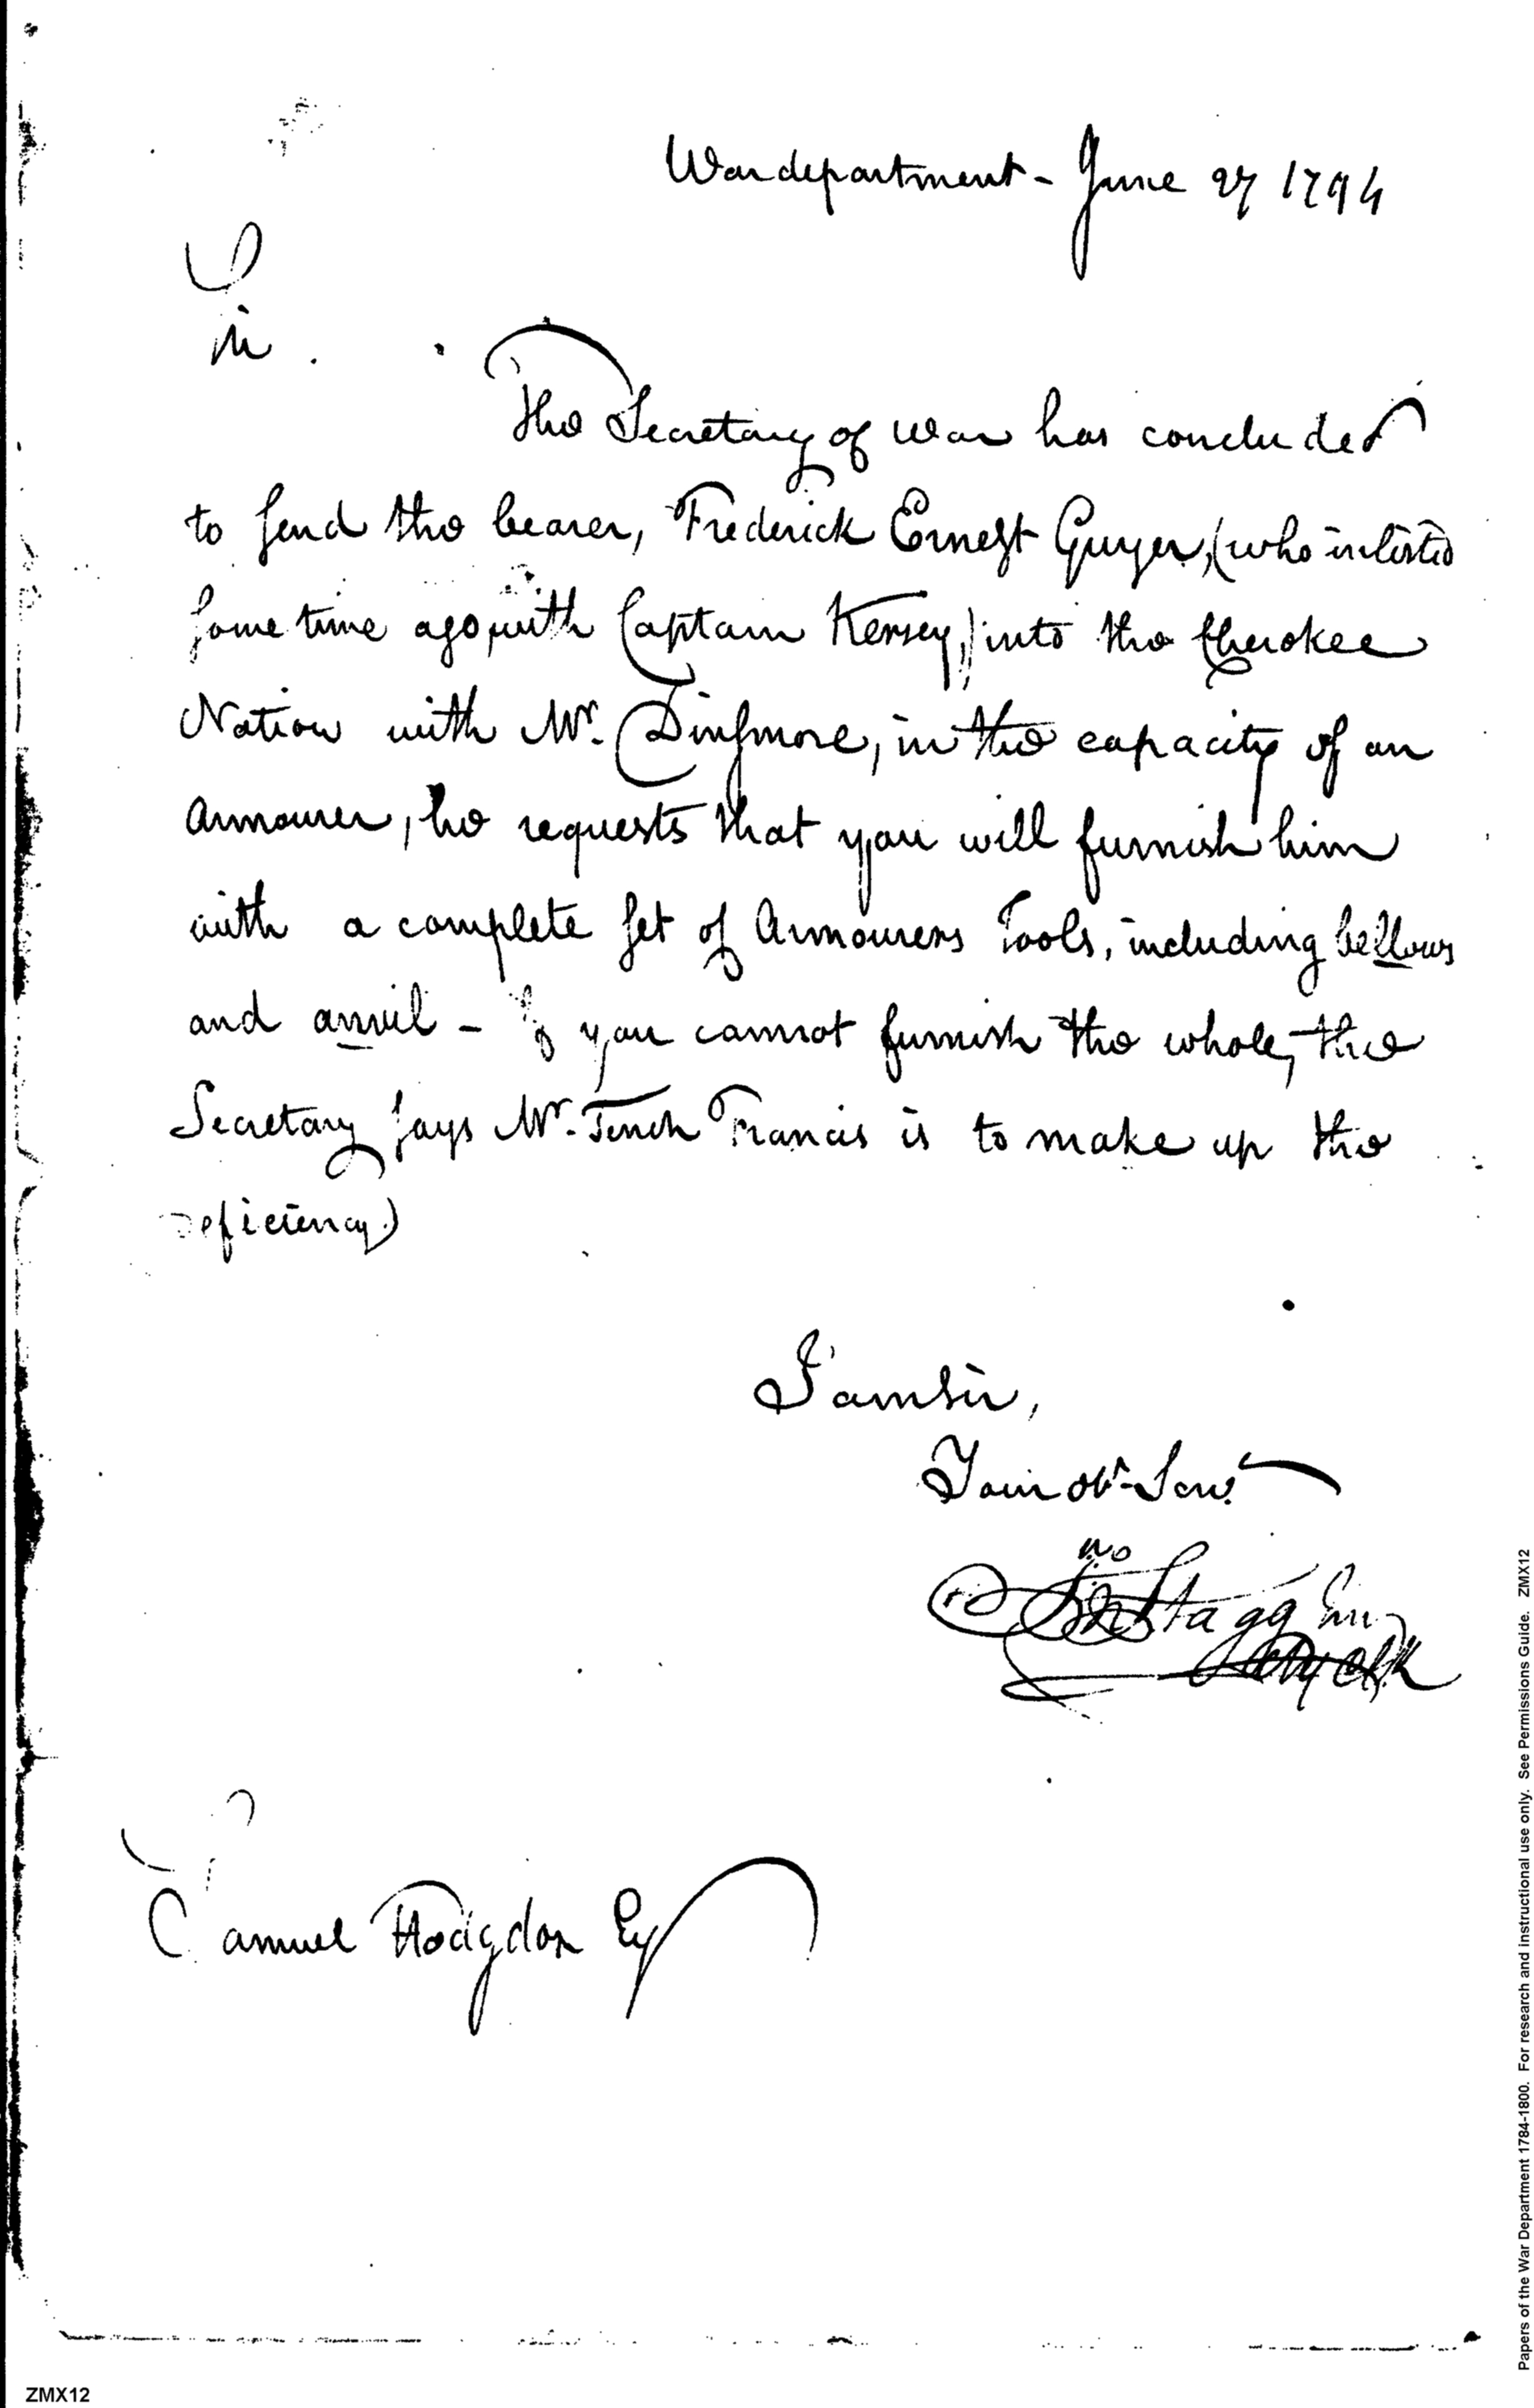 War department - June 27 1794
Sir.
The Secretary of War has concluded
to send the bearer, Frederick Ernest Guyer, (who inlisted
some time ago with Captain Kersey,) into the Cherokee
Nation with Mr. Dinsmore, in the capacity of an
Armourer, he requests that you will furnish him
with a complete set of Armourers Tools, including bellows
and anvil - If you cannot furnish the whole, the
Secretary says Mr. Tench Francis is to make up the
deficiency.)
I am Sir,
Your obt. Servt.
Jno Stagg Junr
Chf. Clk
Samuel Hodgdon Esq
Papers of the War Department 1784-1800. For research and instructional use only. See Permissions Guide. ZMX12
ZMX12